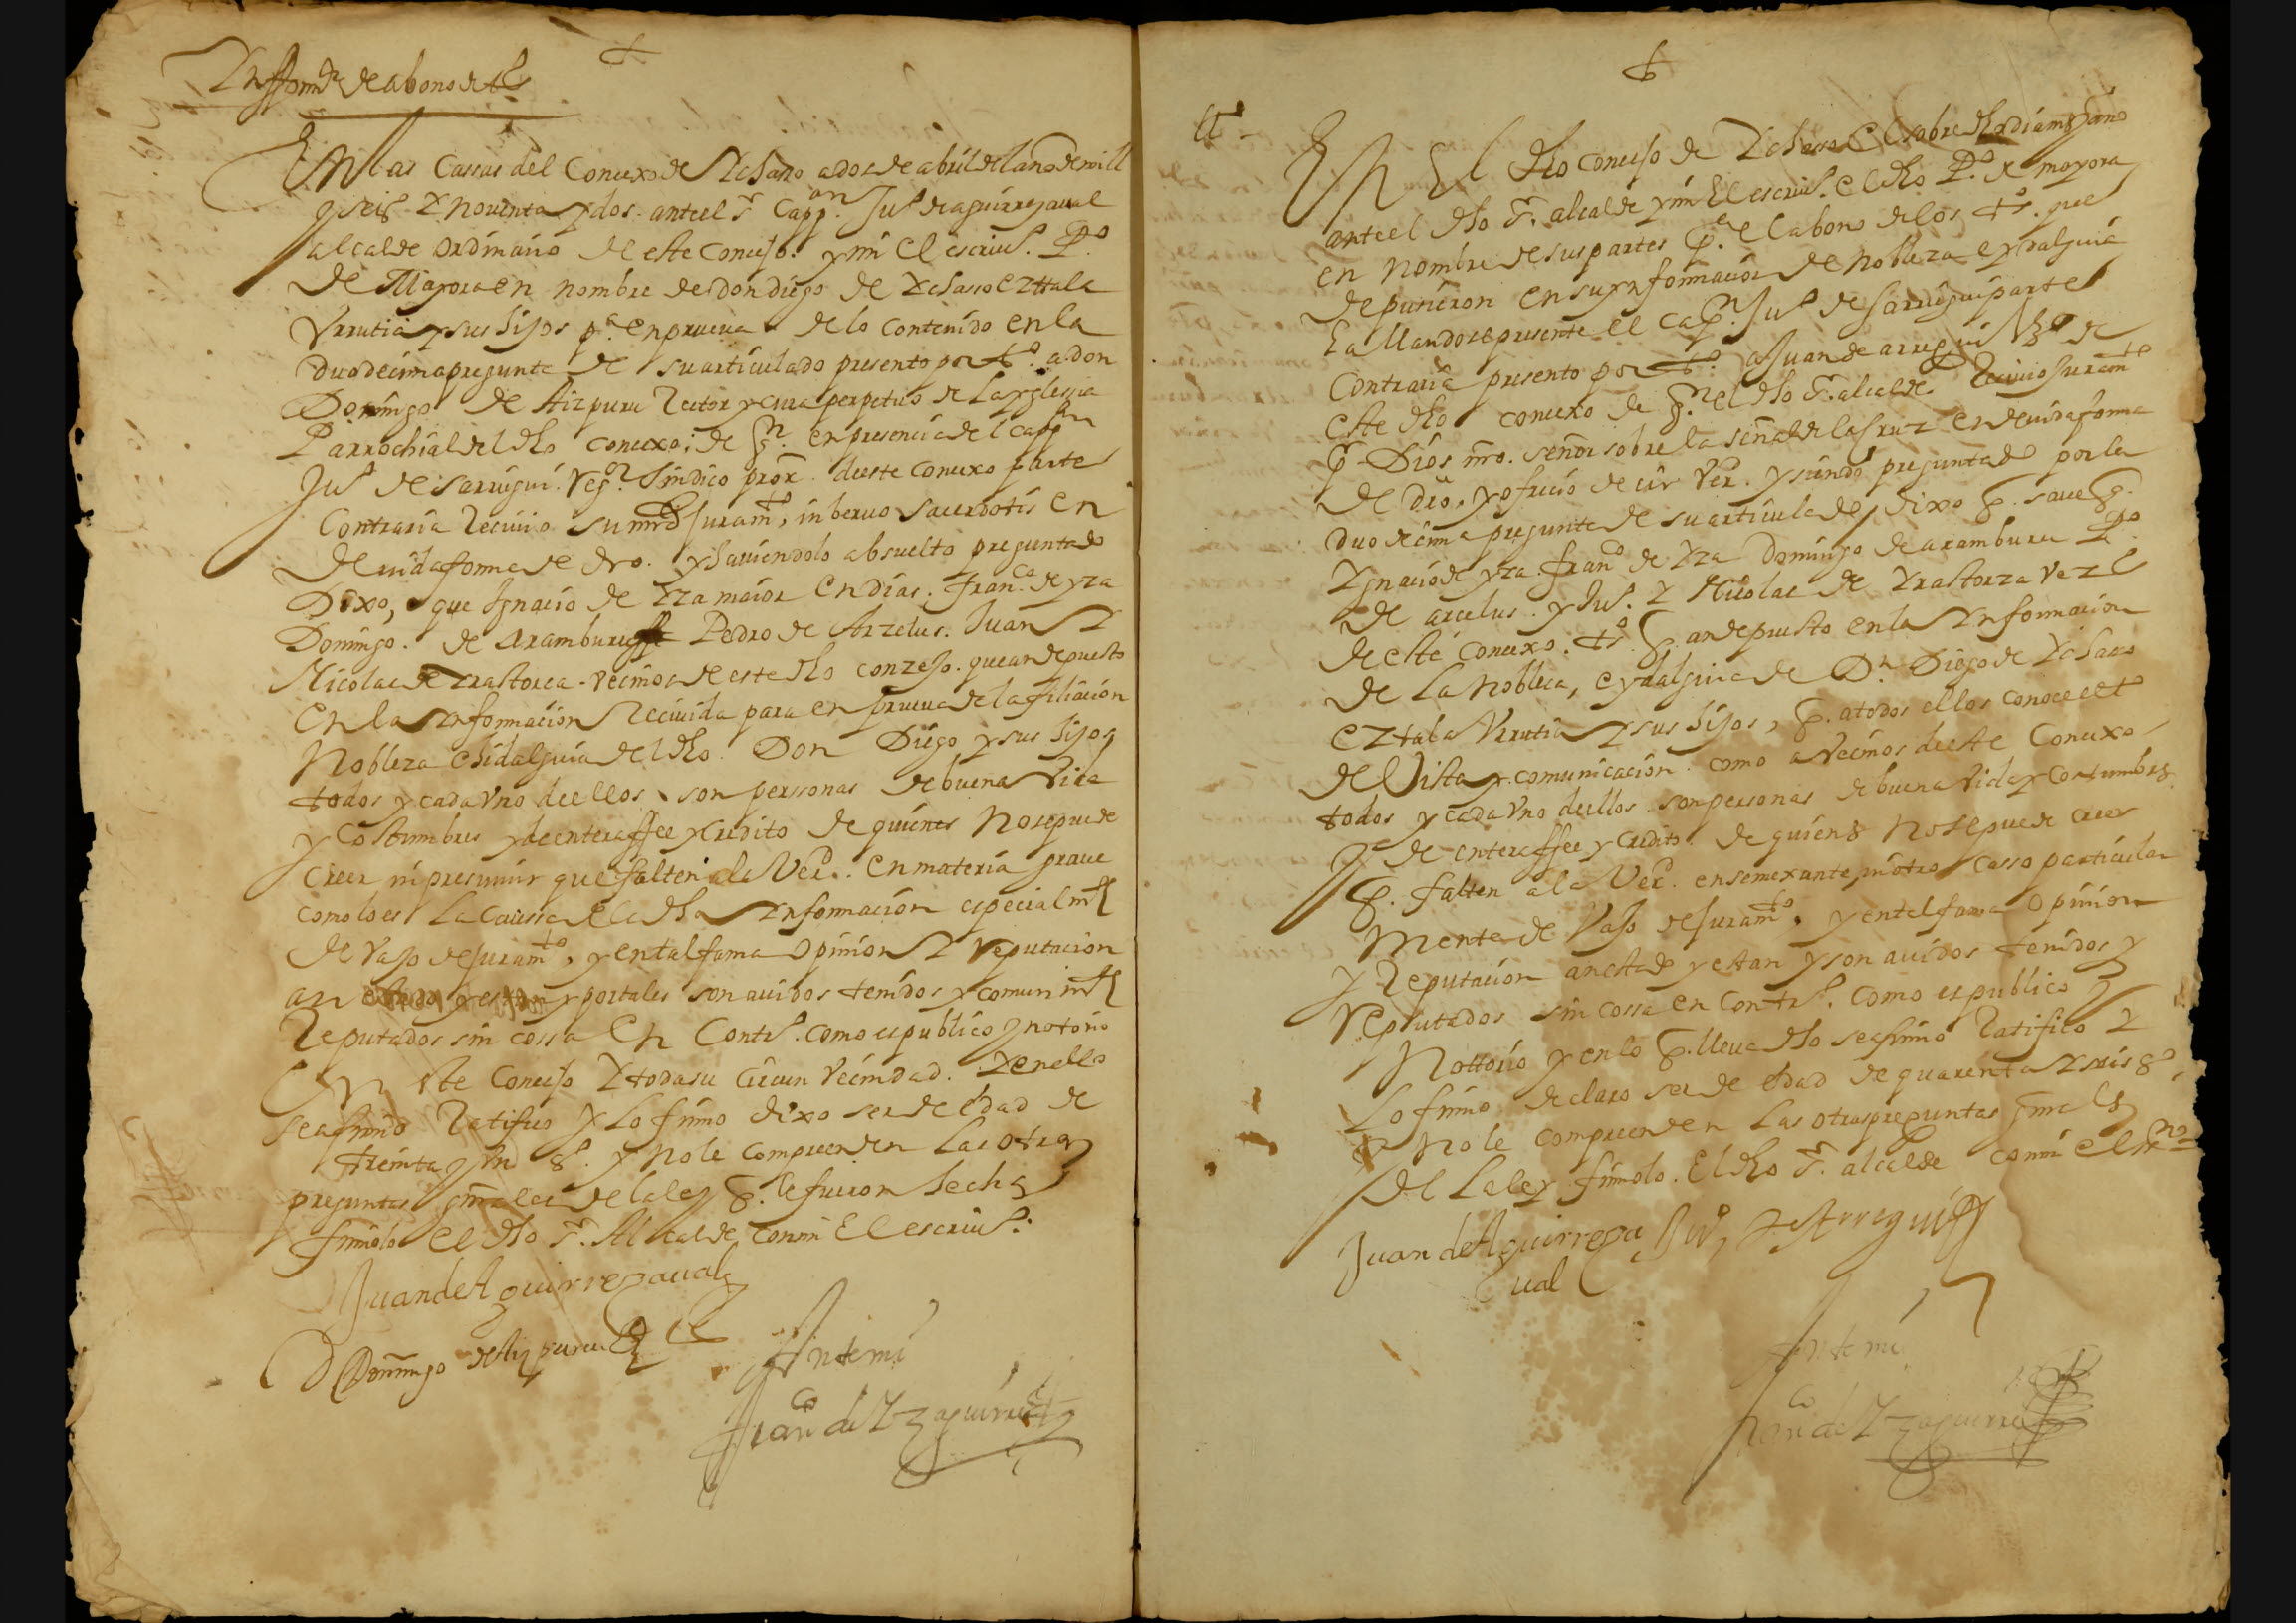 Ynfform.on de abono de t.os
En las Cassas del Concexo de Ychaso a dos de abril del año de mill
y seis.os Y noventa y dos. ante el s.r Capp.an Ju.o de aguirreçaual
alcalde ordinario de este Concejo. y mi el escriu.o P.o
de Mayora en nombre de don diego de Ychasso ezttala
Vrrutia y sus hijos p.a en prueua de lo contenido en la
duodecima pregunta de su articulado presento por t.o a don
Domingo de Aizpuru Rector y cura perpetuo de La yglesia
Parrochial del dho concexo; de q.n en presencia del capp.an
Ju.o de Sarrigui. reg.or Sindico pror. de este Concexo parte
Contraria Reciuio su mrd juram.to, in beruo Sacerdotis en
deuida forma de dro. y hauiendolo absuelto preguntado
Dixo, que Ignacio de Yza maior en dias. Fran.co de yza
Domingo. de Aramburu Pedro de Arzelus. Juan Y
Nicolas de Yrastorza - vecinos de este dho conzejo. que an depuesto
en la Ynformacion Reciuida para en prueua de la filiacion
Nobleza e hidalguia del dho. Don Diego y sus hijos
todos y cada vno de ellos son perssonas de buena Vida
y Costumbres y de entera ffee y credito de quienes no se puede
creer ni presumir que falten a la Ver.d. en materia graue
como lo es La Caussa de la dha Ynformacion especialm.te
de vajo de juram.to, y en tal fama opinion Y reputacion
an estado y estan y por tales son auidos tenidos y comunm.te
Reputados sin cossa en Contr.o. como es publico y notorio
En este Concejo Y toda su circun vecindad. Y en ello
se afirmo Ratifico Y Lo firmo dixo ser de edad de
treinta y un a.s. y no le comprenden Las otras
preguntas gnrales de la ley q. le fueron hechas
firmolo el dho s.r. Alcalde con mi El escriu.o:
Juan de Aguirreçaual
D Domingo de Aizpuru
Ante mi
Fran.co de Yzaguirre
tt.o -
En El dho concejo de Ychasso El sobre dho dia mes y año
ante el dho s.r. alcalde y mi El escriu.o. el dho P.o de mayora
en nombre de sus partes p.a el abono de los t.os. que
depusieron en su ynformacion de nobleza e ydalguia
hallandose presente el cap.n Ju.o de Sarrigui parte
Contraria presento por t.o. a Juan de arregui V.o de
este dho concexo de q.n el dho s.r. alcalde Reciuio juram.to
p.r Dios nro. señor sobre la señal de la Cruz en deuida forma
de dro, y ofrecio decir Ver.d. y siendo preguntado por la
duodecima pregunta de su articulado, dixo q. saue q.
Ygnacio de yza fran.co de Yza Domingo de aramburu P.o
de arcelus. y Ju.o. Y Nicolas de Yrastorza vez.s
de este concexo. t.os q. an depuesto en la Ynformacion
de La Nobleza, e ydalguia de D.n Diego de Ychaso
Eztala Vrrutia Y sus hijos, q. a todos ellos conoce el t.o
de Vista y comunicacion. como a vecinos de este Concexo
todos y cada vno de ellos son personas de buena vida y costumbres
y de entera ffee y credito. de quienes no se puede creer
q. falten a la Ver.d. en semexante, ni otro casso particular
mente de Vajo de juram.to, y en tal fama opinion
y Reputacion an estado y estan y son auidos tenidos y
reputados sin cossa en contr.o. como es publico y
nottorio y en lo q. lleua dho se afirmo Ratifico Y
Lo firmo, declaro ser de edad de quarenta Y seis a.s
y no le comprenden Las otras preguntas gnrales
de La ley firmolo. El dho s.r. alcalde con mi el ss.no
Juan de Aguirreça
ual
Ju.o de Arregui
Ante mi
Fran.co de Yzaguirre